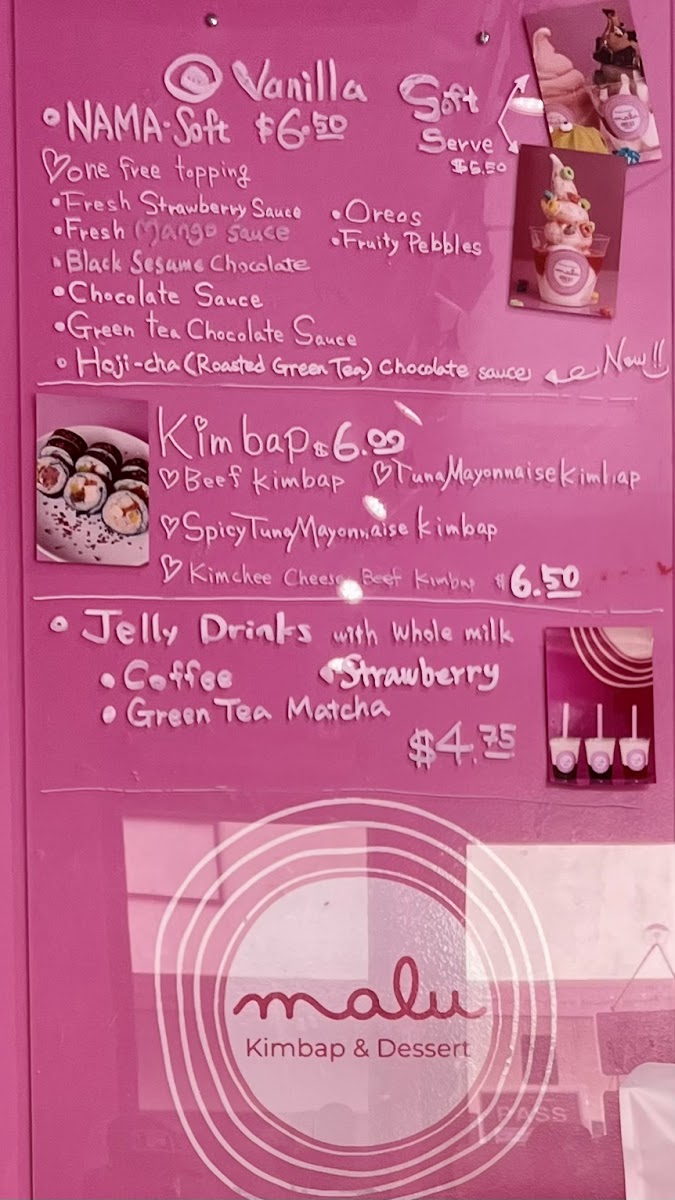 Vanilla
• NAMA-Soft $6.50
Soft
Serve
$6.50
♡one free topping
• Fresh Strawberry Sauce
• Fresh Mango Sauce
• Black Sesame Chocolate
• Chocolate Sauce
• Green tea Chocolate Sauce
• Hoji-cha (Roasted Green Tea) Chocolate sauce
New!!
• Oreos
• Fruity Pebbles
malu
malu
Kimbap $6.00
♡Beef Kimbap ♡Tuna Mayonnaise Kimbap
♡Spicy Tuna Mayonnaise Kimbap
♡Kimchee Cheese Beef Kimbap $6.50
• Jelly Drinks with whole milk
• Coffee • Strawberry
• Green Tea Matcha
$4.75
malu
Kimbap & Dessert